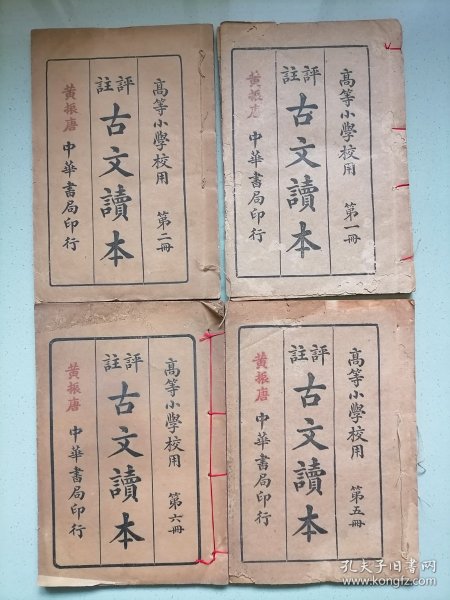 高等小學校用 第二冊
評註
古文讀本
黃振唐
中華書局印行
高等小學校用 第一冊
評註
古文讀本
黃振唐
中華書局印行
高等小學校用 第六冊
評註
古文讀本
黃振唐
中華書局印行
高等小學校用 第五冊
評註
古文讀本
黃振唐
中華書局印行
孔夫子旧书网
www.kongfz.com